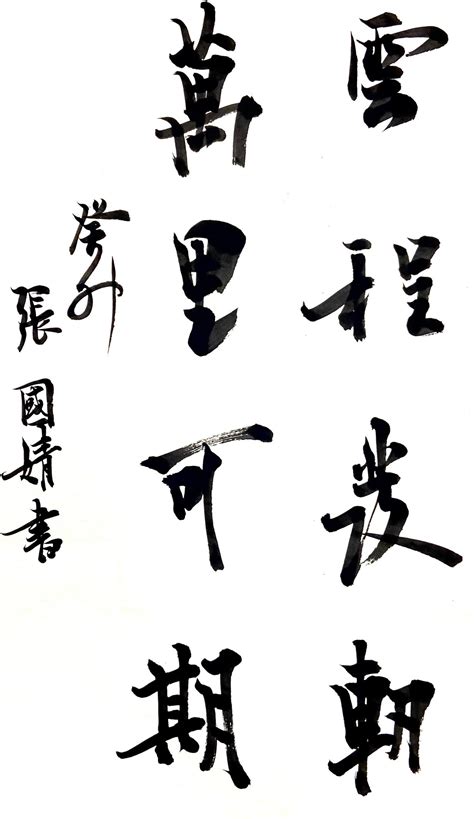 雲程發軔
萬里可期
癸卯
張國婧書